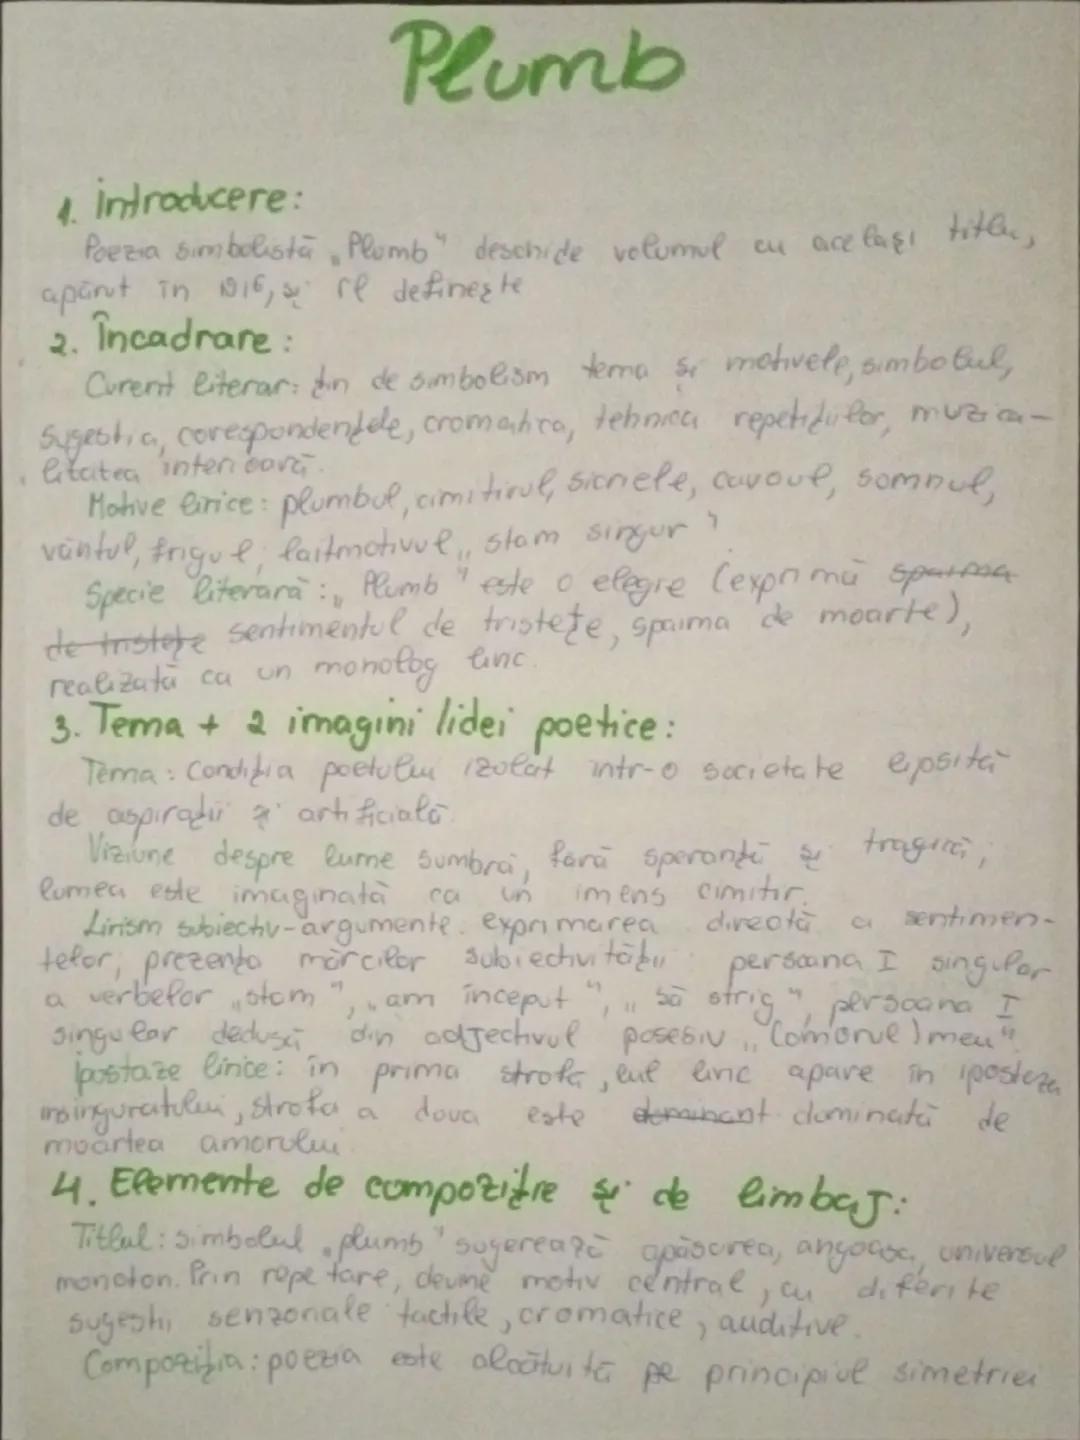 Plumb
1. Introducere:
Poezia simbolistă „Plumb" deschide volumul cu același titlu,
apărut în 1916, și îl definește
2. Încadrare:
Curent literar: țin de simbolism tema și motivele, simbolul,
sugestia, corespondențele, cromatica, tehnica repetițiilor, muzica-
litatea interioară.
Motive lirice: plumbul, cimitirul, sicriele, cavoul, somnul,
vântul, frigul, laitmotivul „stam singur"
Specie literară: „Plumb" este o elegie (exprimă spaima
de tristețe sentimentul de tristețe, spaima de moarte),
realizată ca un monolog liric.
3. Tema + 2 imagini/idei poetice:
Tema: Condiția poetului izolat într-o societate lipsită
de aspirații și artificială.
Viziune despre lume sumbră, fără speranță și tragică;
lumea este imaginată ca un imens cimitir.
Lirism subiectiv-argumente: exprimarea directă a sentimen-
telor, prezența mărcilor subiectivității: persoana I singular
a verbelor „stam", „am început", „să strig", persoana I
singular dedusă din adjectivul posesiv „(amorul) meu"
Ipostaze lirice: în prima strofă, eul liric apare în ipostaza
însinguratului, strofa a doua este dominant dominată de
moartea amorului.
4. Elemente de compoziție și de limbaj:
Titlul: simbolul „plumb" sugerează apăsarea, angoasa, universul
monoton. Prin repetare, devine motiv central, cu diferite
sugestii senzoriale tactile, cromatice, auditive.
Compoziția: poezia este alcătuită pe principiul simetriei